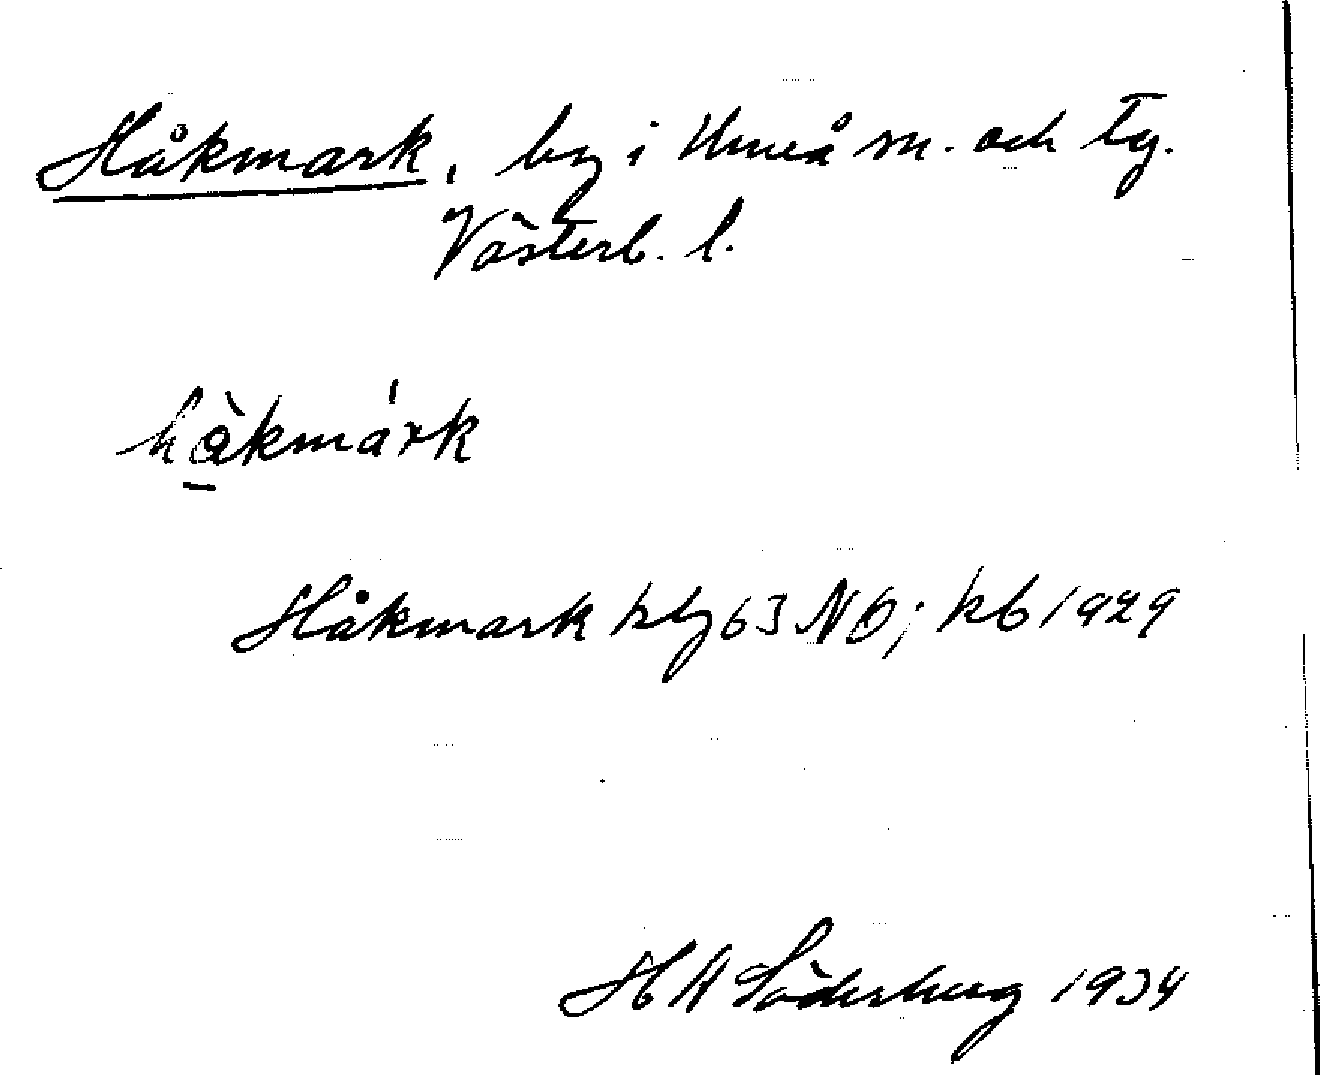 Håkmark, by i Umeå sn. och tg.
Västerb. l.
hà̱kmárk
Håkmark kbg 63 NO; kb 1929
H A Söderberg 1934